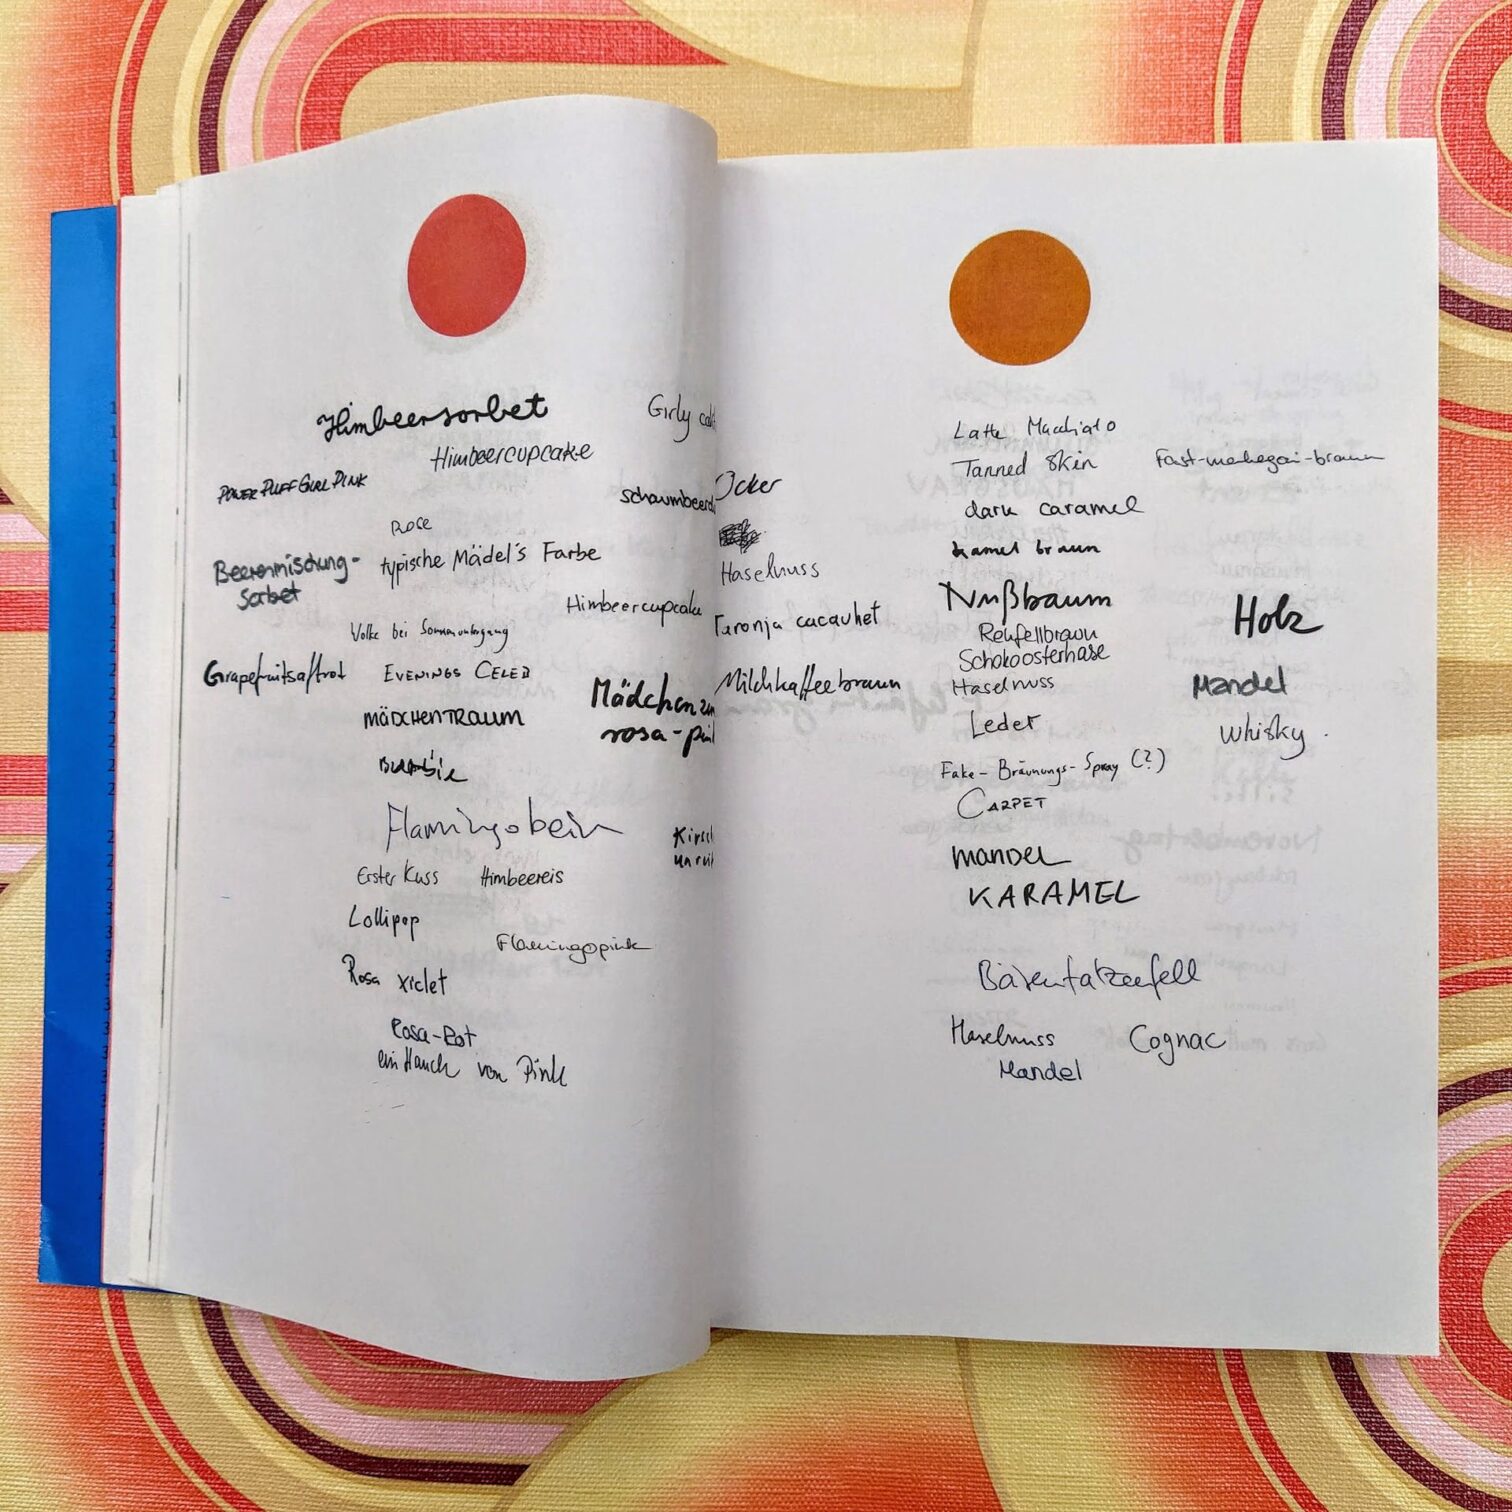 Himbeersorbet
Girly
Himbeercupcake
POWER PUFF GIRL PINK
schaumbeer
typische Mädel's Farbe
Beerenmischung-
Sorbet
Himbeercupcake
Wolke bei Sonnenuntergang
Grapefruitsaftrot
EVENINGS CELEB
Mädchen
rosa-pin
MÄDCHENTRAUM
Flamingobein
Kirsch
unreif
Erster Kuss
Himbeereis
Lollipop
Flamingopink
Rosa xiclet
Rosa-Rot
ein Hauch von Pink
Latte Macchiato
Tanned Skin
Fast-mahagoni-braun
Ocker
dark caramel
braun
Haselnuss
Nußbaum
Holz
Taronja cacauhet
Rehfellbraun
Schokoosterhase
Milchkaffeebraun
Haselnuss
Mandel
Leder
Whisky
Fake-Bräunungs-Spray (?)
CARPET
MANDEL
KARAMEL
Bärentatzenfell
Haselnuss
Cognac
Mandel